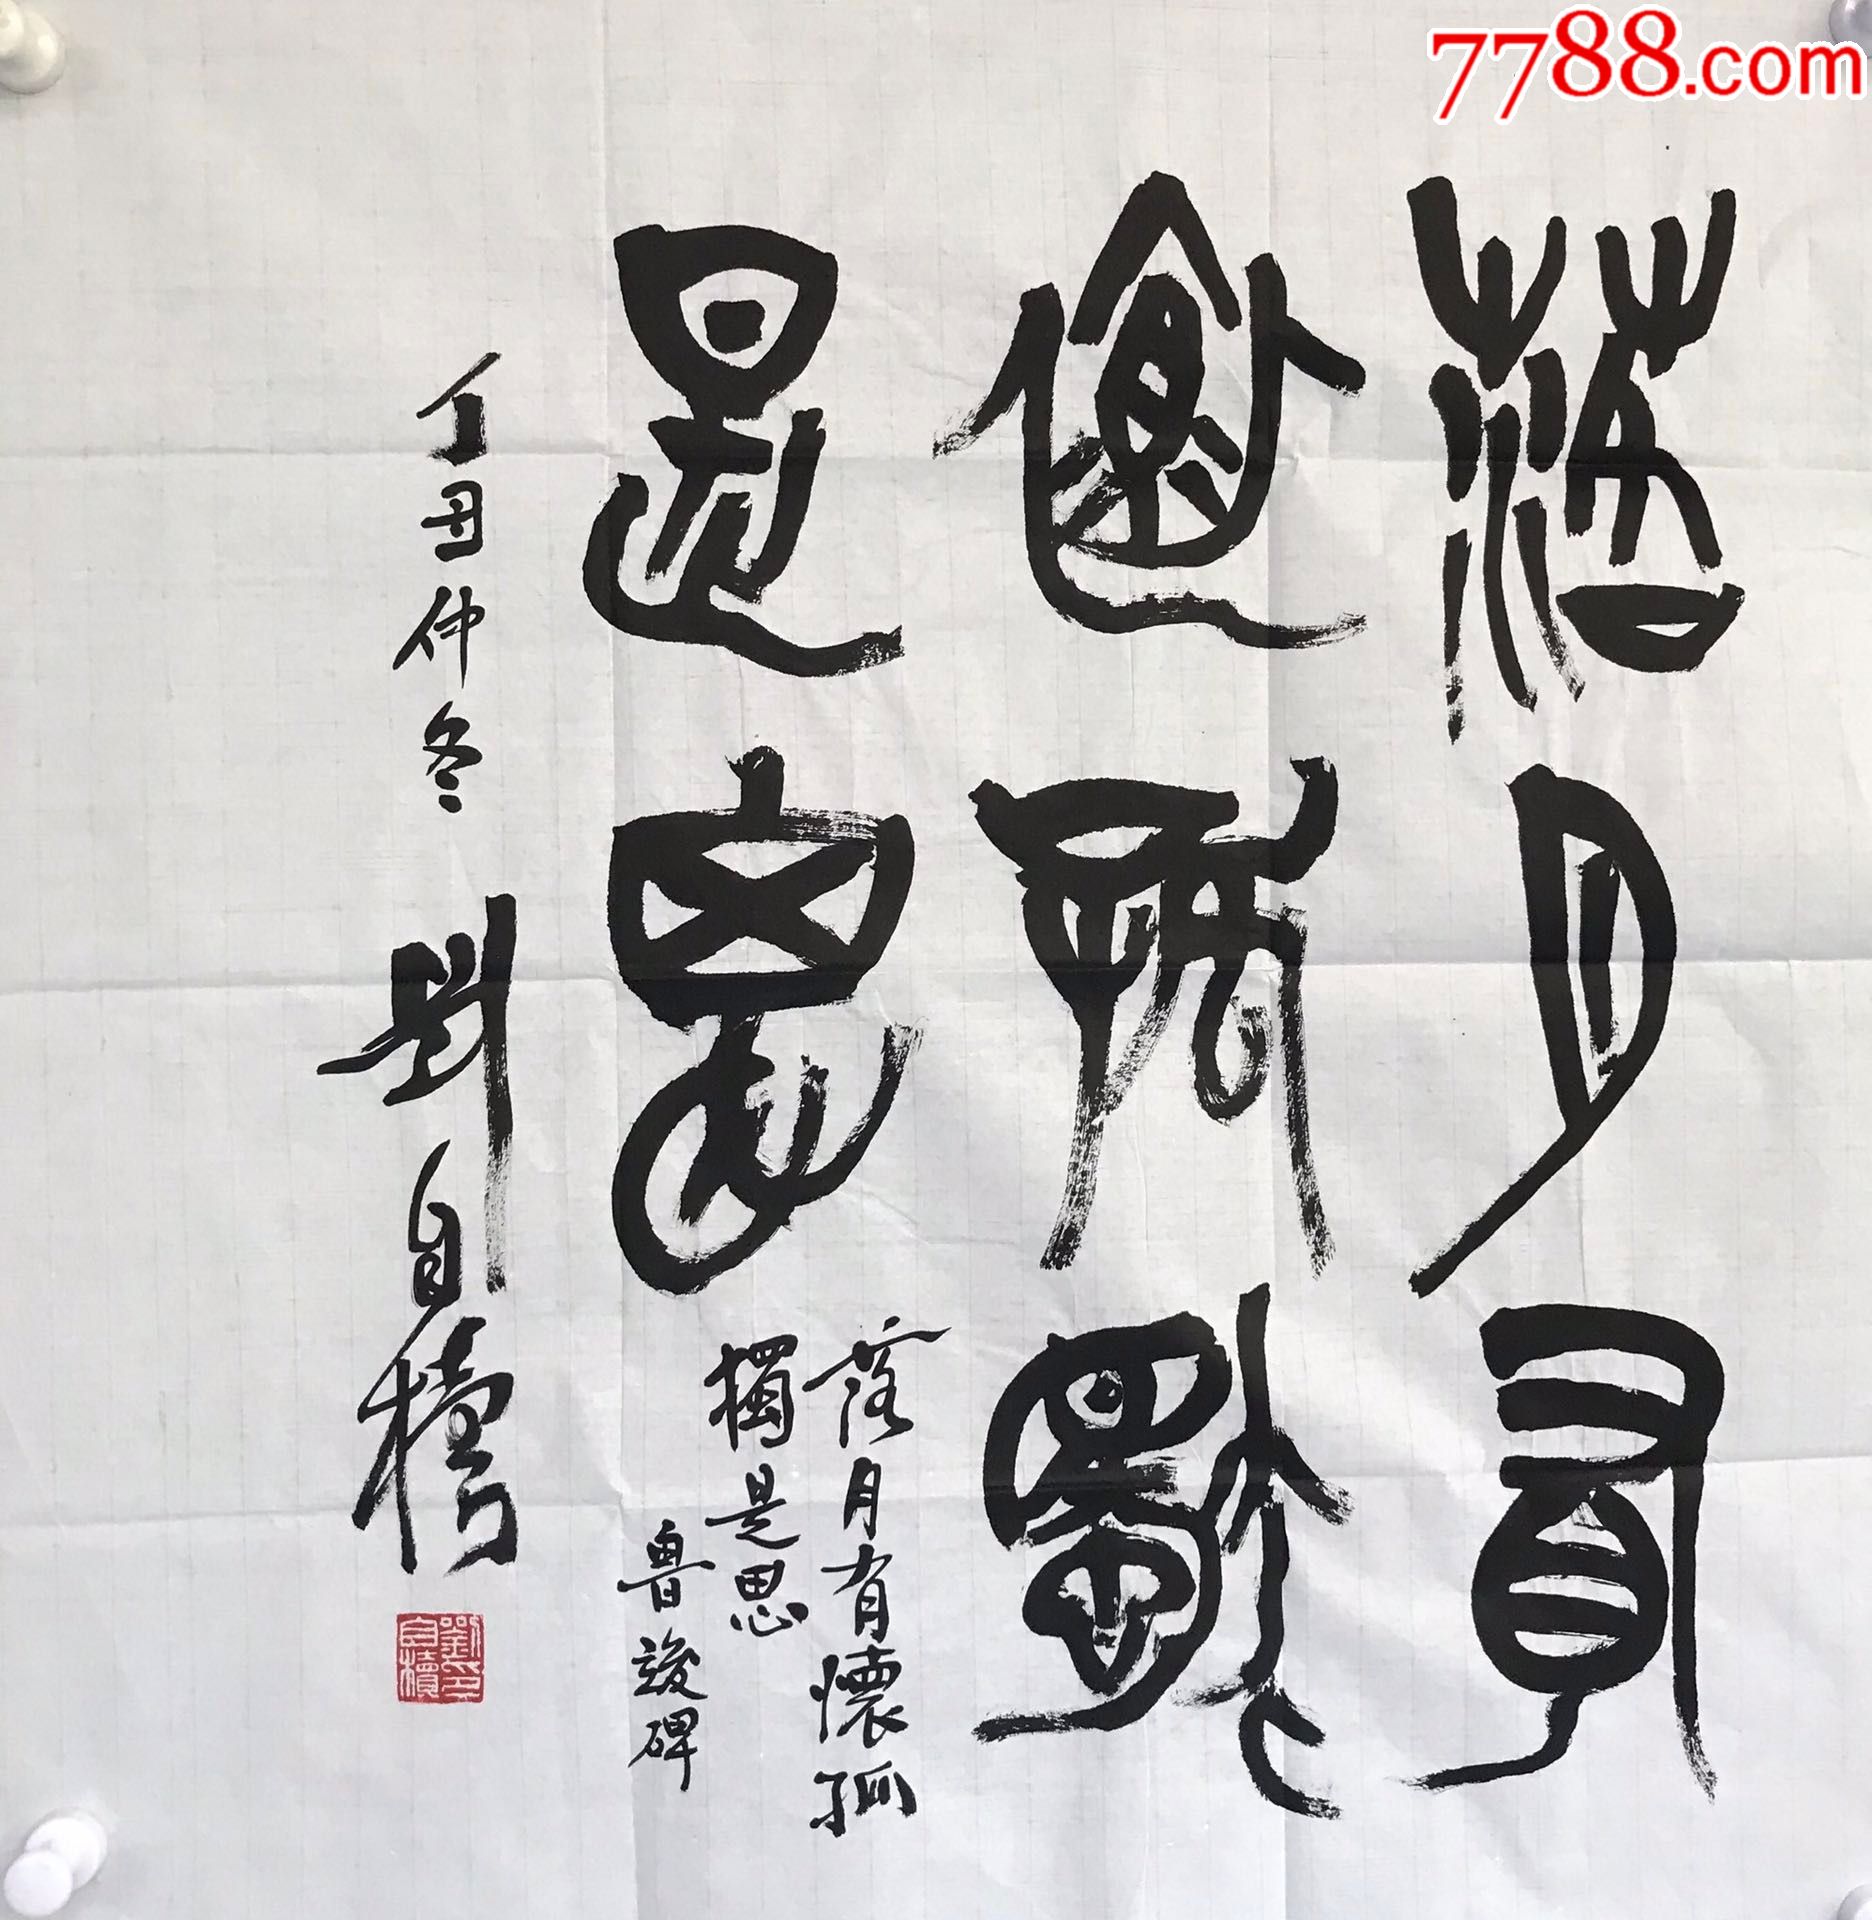 7788.com
落月有
懷孤獨
是思
落月有懷孤
獨是思
魯竣碑
丁丑仲冬 劉自櫝
劉印
自櫝